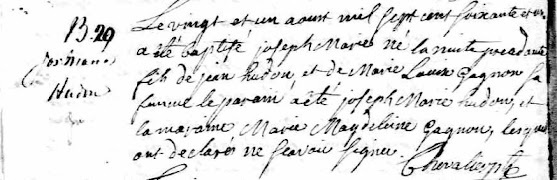 B. 29
Joseph Marie
Hudon
Le vingt et un aoust mil sept cent soixante et
a été baptisé joseph Marie né la nuite precedante
fils de jean hudon, et de Marie Gagnon sa
famme le parain a été joseph Marie hudon, et
la maraine Marie Magdeleine Gagnon, lesquels
ont declaré ne scavoir signer. Chevalier ptre